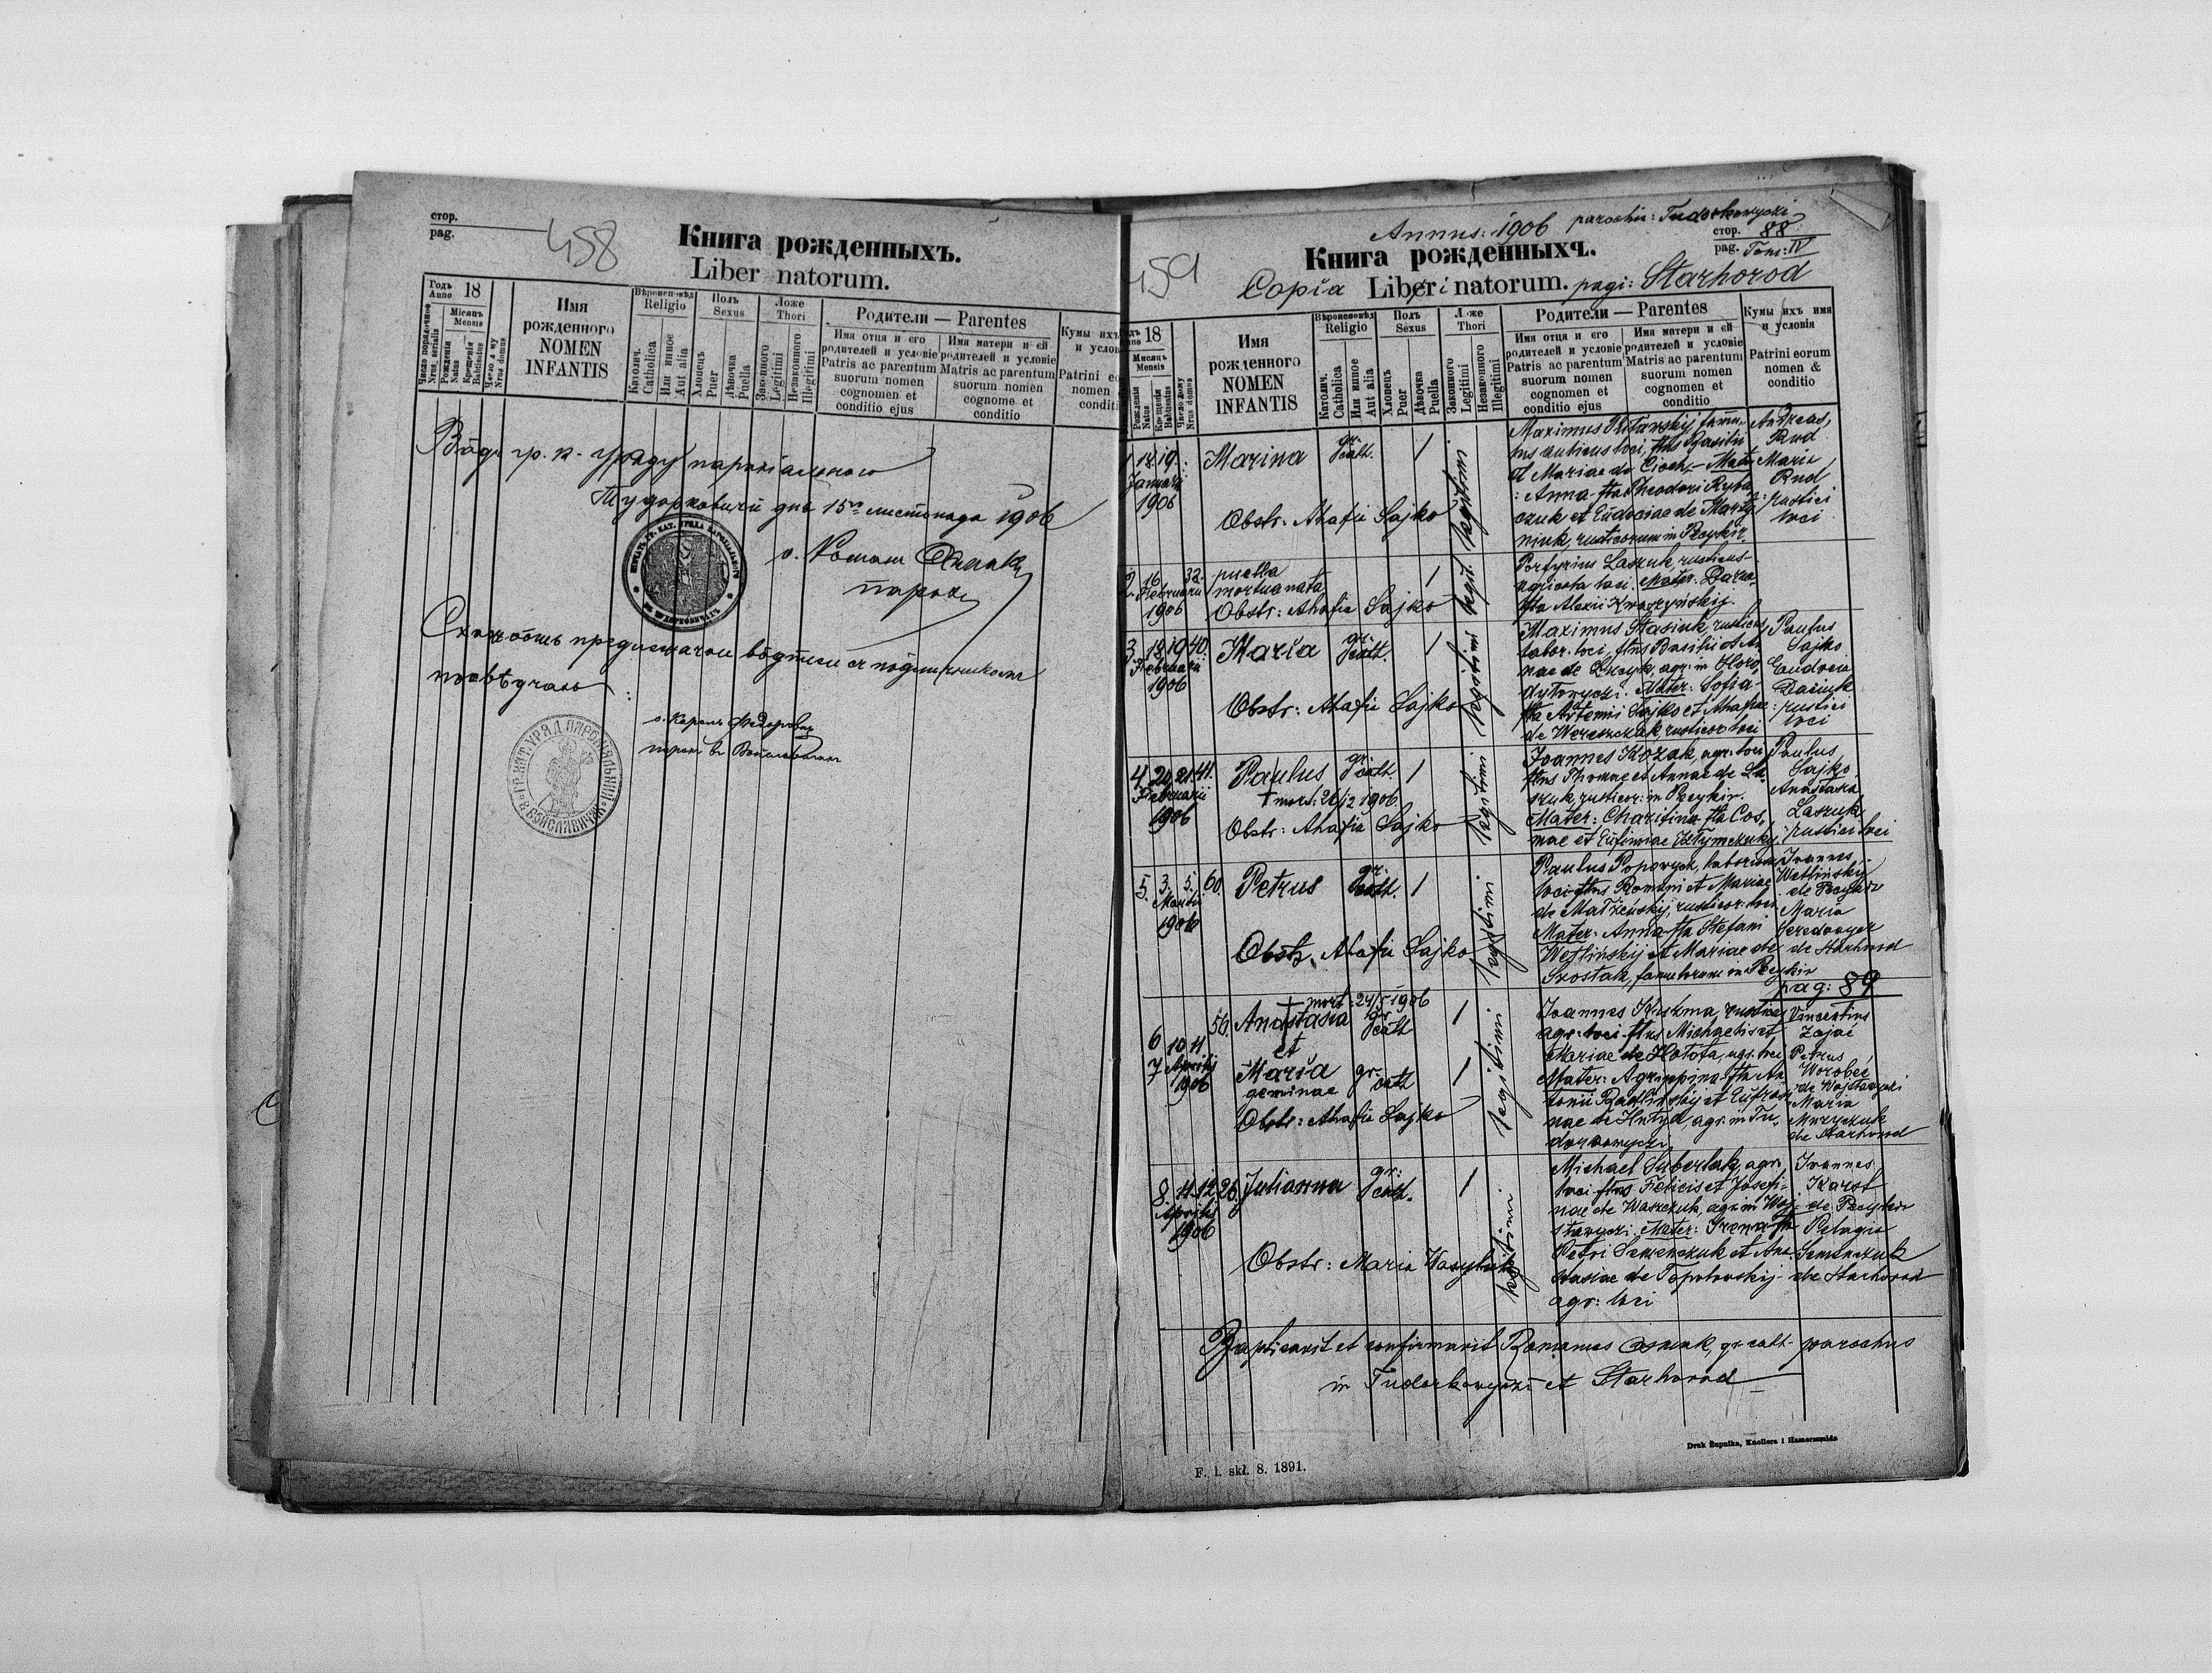 стор.
pag.
458
Книга рожденныхъ.
Liber natorum.
Годъ Anno 18
Мѣсяць Mensis
Число порядочное Nrus serialis
Рожденія Natus
Крещенія Babtisatus
Число дому Nrus domus
Имя
рожденного
NOMEN
INFANTIS
Вѣроисповѣд
Religio
Католич. Catholica
Или инное Aut alia
Полъ
Sexus
Хлопецъ Puer
Дѣвочка Puella
Ложе
Thori
Законного Legitimi
Незаконного Illegitimi
Родители — Parentes
Имя отця и его
родителей и условіе
Patris ac parentum
suorum nomen
cognomen et
conditio ejus
Имя матери и єѣ
родителей и условіе
Matris ac parentum
suorum nomen
cognome et
conditio
Кумы ихъ
и услов
Patrini eo
nomen
conditi
Вôдъ гр. к. уряду парохіального
Тудорковичи дня 15го листопада 1906
о. Роман
парох
посвѣдчаю:
о. Кароль Федорович
парох в
Annus: 1906 parochiu: Tudorkowyczi
стор. 88
pag. Tom: IV
459
Книга рожденныхъ.
Copia Libri natorum. pagi: Starhorod
18
Мѣсяць
Mensis
Рожденія Natus
Крещенія Babtisatus
Число дому Nrus domus
Имя
рожденного
NOMEN
INFANTIS
Вѣроисповѣд
Religio
Католич. Catholica
Или инное Aut alia
Полъ
Sexus
Хлопецъ Puer
Дѣвочка Puella
Ложе
Thori
Законного Legitimi
Незаконного Illegitimi
Родители — Parentes
Имя отця и его
родителей и условіе
Patris ac parentum
suorum nomen
cognomen et
conditio ejus
Имя матери и єѣ
родителей и условіе
Matris ac parentum
suorum nomen
cognomen et
conditio
Кумы ихъ имя
и условія
Patrini eorum
nomen &
conditio
1 18. 19. Januarii 1906
Marina
gr. cath.
1
legitimi
Obstr: Ahafia Sajko
Maximus
loci, ftus Basilii
et Mariae de Cioch, Mater
: Anna fta Theodori Ryba
czuk et Eudociae de Marty
niuk, rusticorum in Peczykir.
Andreas
Rud
Maria
Rud
rustici
loci
2. 16 Februarii 1906 32.
puella
mortua nata
1
legit.
Obstr: Ahafia Sajko
Porfyrius Laszuk, rusticus
agricola loci. Mater: Daria
fta Alexii
3. 18. 19. Februarii 1906 40.
Maria
gr. cath.
1
legitimi
Obstr: Ahafia Sajko
Maximus Stasiuk, rusticus
labor. loci, ftus Basilii et An
nae de agr. in Horo
dytowyczi. Mater: Sofia
fta Artemii Sajko et Ahafiae
de Wereszczak, rusticor. loci
Paulus
Sajko
Eudocia
Daciuk
rustici
loci
4 20 21. Februarii 1906 41.
Paulus
gr. cath.
1
legitimi
† mort: 26/12 1906.
Obstr: Ahafia Sajko
Joannes Kozak, agr. loci
ftus Thomae et Annae de La
szuk, rusticor: in Peczykir.
Mater: Charitina fta Cos
mae et Eufimiae
Paulus
Sajko
Anastasia
Laszuk
rustici loci
5. 3. 5. Martii 1906 60.
Petrus
gr. cath.
1
legitimi
Obstr. Ahafia Sajko
Paulus Popowycz, laborius
loci ftus Romani et Mariae
de rusticor. loci
Mater: Anna fta Stefani
Wetlińskij et Mariae de
Szostak, famulorum in Peczykir
Joannes
Wetlinskij
de Peczykir
Maria
de Starhorod
pag: 89
6 7 10 11. Aprilis 1906 56.
† mort: 24/5 1906
Anastasia gr. cath 1
et
Maria gr. cath 1
geminae
legitimi
Obstr: Ahafia Sajko
Joannes Kukma, rusticus
agr. loci ftus Michaelis et
Mariae de Hołota, agr. loci
Mater: Agrippina fta An
tonii et Eufrosi
nae de Hnatyd, agr. in Tu
dorkowyczi
Vincentius
Zajać
Petrus
Worobec
de Wojsławyczi
Maria
Muzyczuk
de Starhorod
8. 11. 12 Aprilis 1906 26.
Julianna
gr: cath.
1
legitimi
Obstr: Maria Wasyluk
Michael Suberlak, agr.
loci ftus Felicis et Josefi
nae de Waszczuk, agr. in Woj
sławyczi. Mater: Irena fta
Petri Semenczuk et Ana
stasiae de Topolowskij
agr: loci
Joannes
Karst
de Peczykir
Pelagia
Semenczuk
de Starhorod
Baptisavit et confirmavit Romanus Osmak, gr. cath. parochus
in Tudorkowyczi et Starhorod
Druk Żupnika, Knollera i Hamerszmida
F. l. skł. 8. 1891.